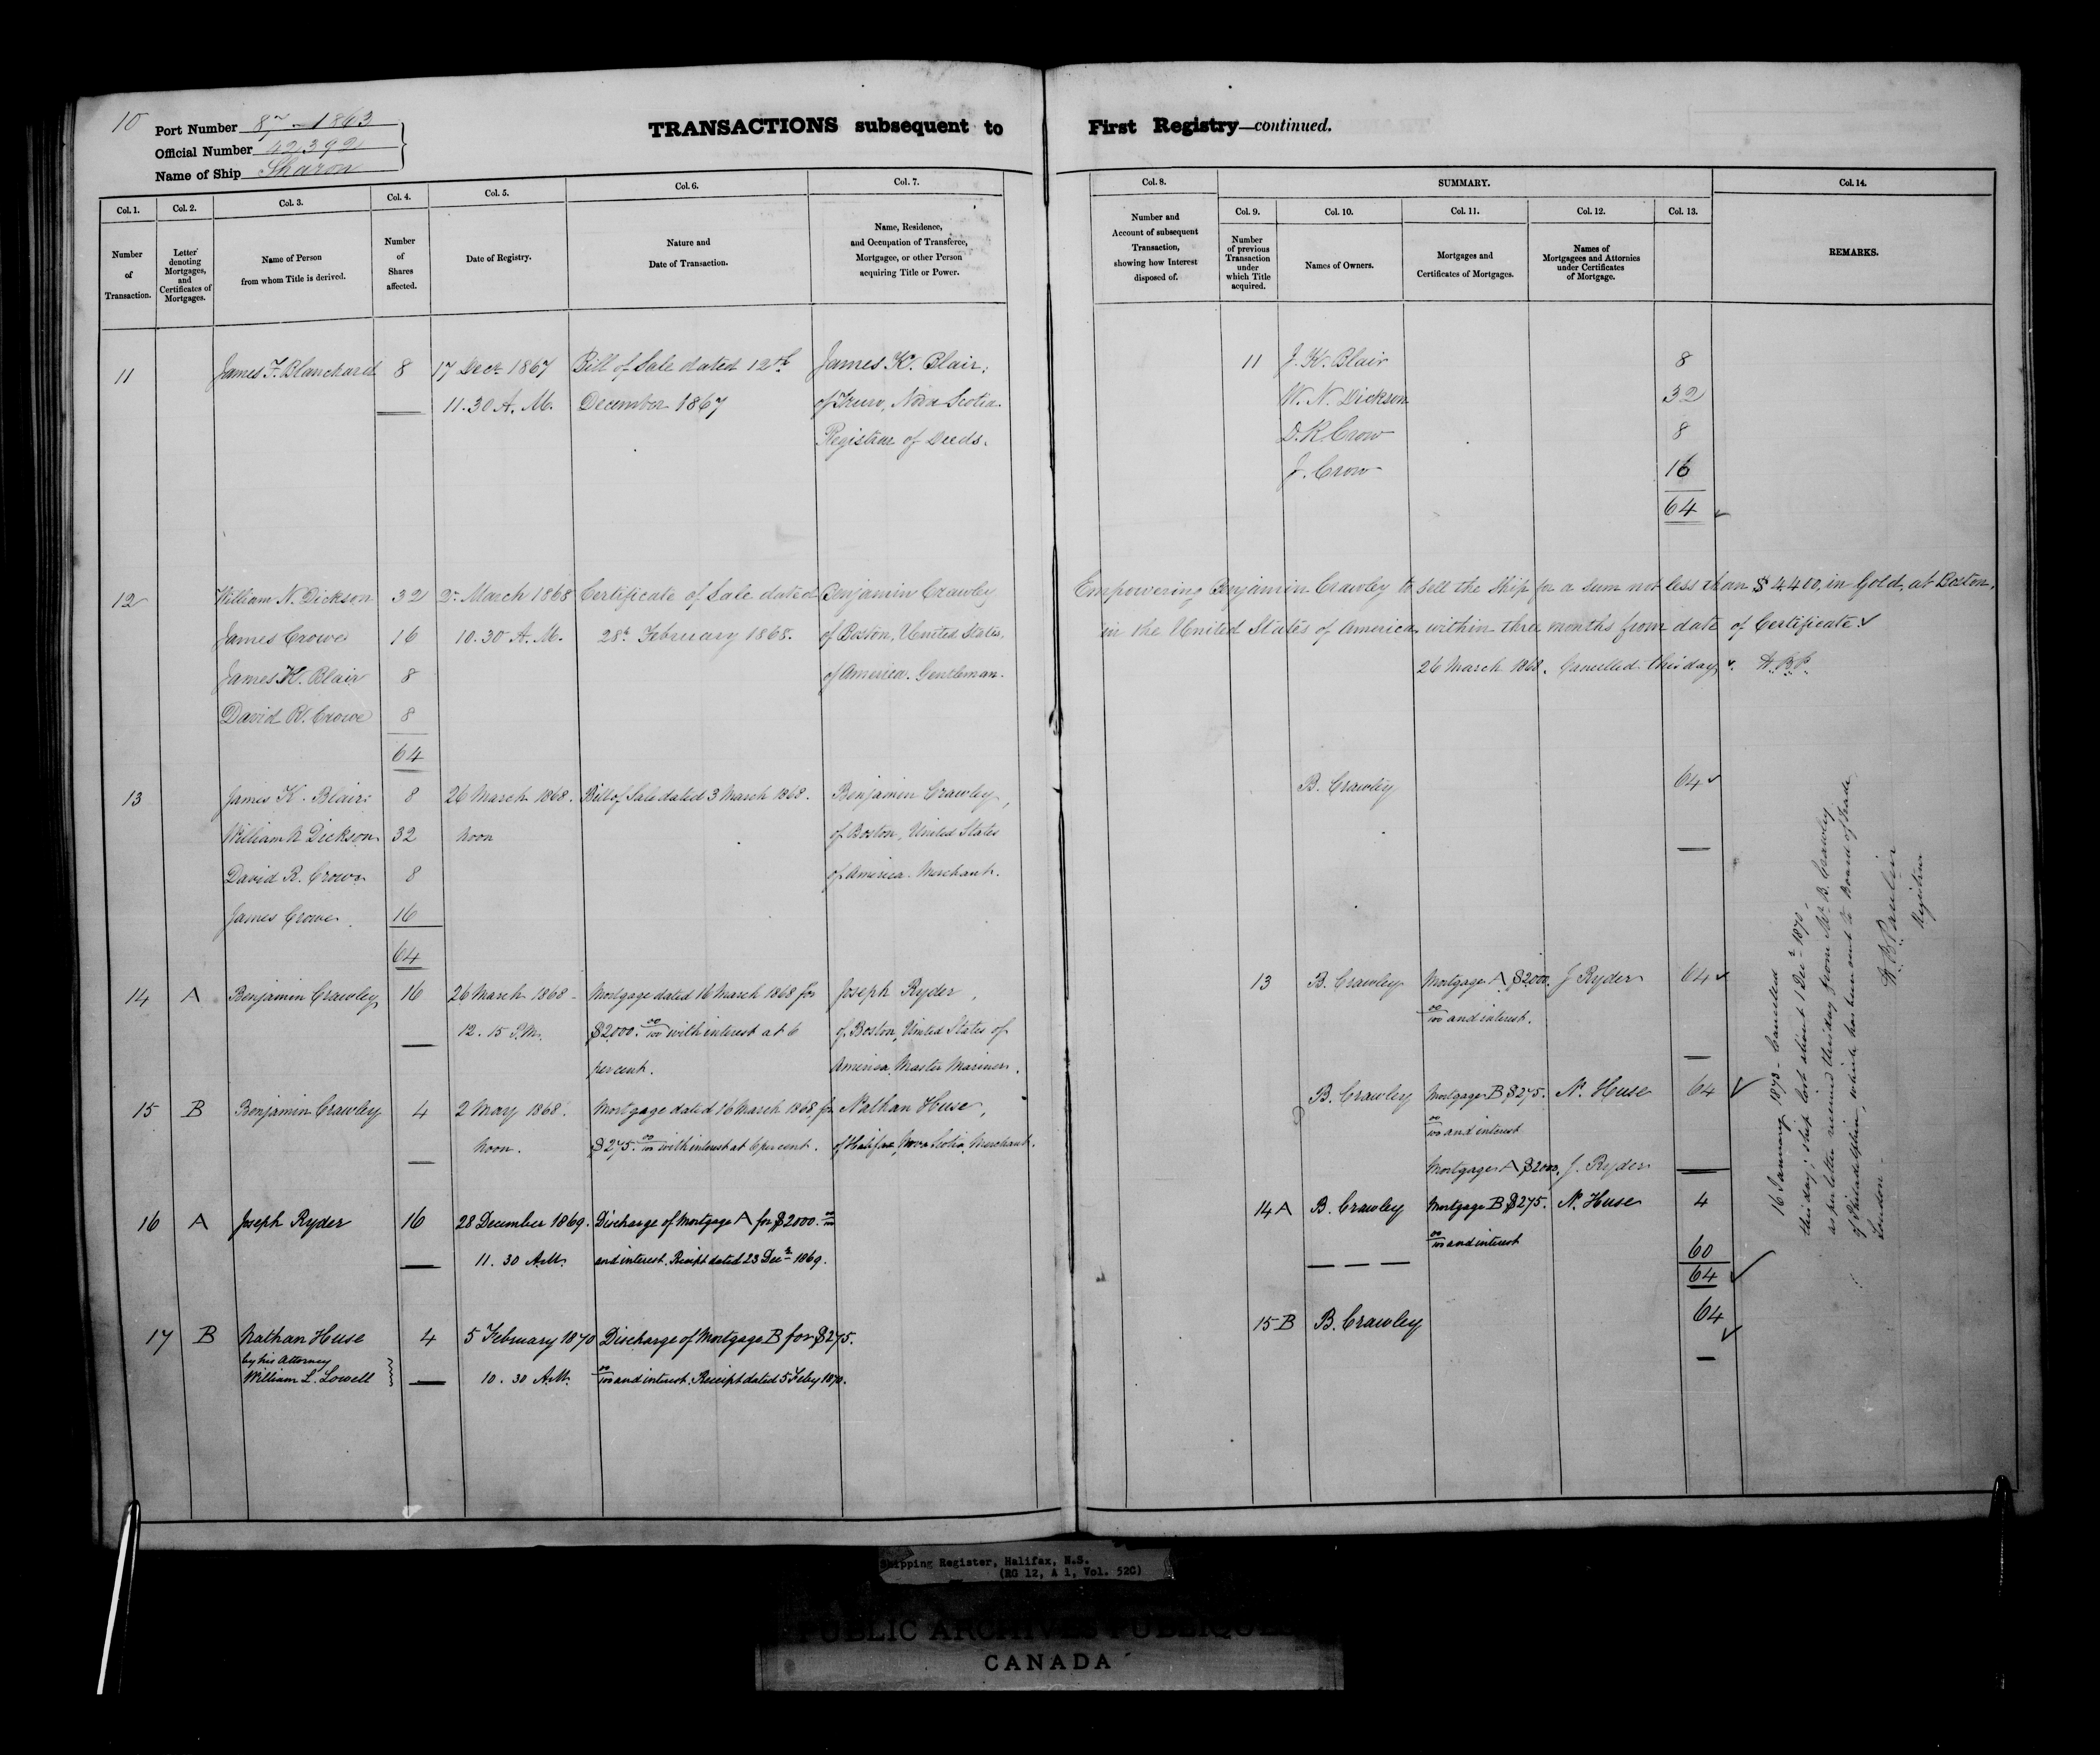 10
Port Number 87 - 1863
Official Number 42,392
Name of Ship Sharon
TRANSACTIONS subsequent to First Registry—continued.
Col. 1. Col. 2. Col. 3. Col. 4. Col. 5. Col. 6. Col. 7. Col. 8. SUMMARY. Col. 14.
Col. 9. Col. 10. Col. 11. Col. 12. Col. 13.
Number of Transaction.
Letter denoting Mortgages, and Certificates of Mortgages.
Name of Person from whom Title is derived.
Number of Shares affected.
Date of Registry.
Nature and Date of Transaction.
Name, Residence, and Occupation of Transferee, Mortgagee, or other Person acquiring Title or Power.
Number and Account of subsequent Transaction, showing how Interest disposed of.
Number of previous Transaction under which Title acquired.
Names of Owners.
Mortgages and Certificates of Mortgages.
Names of Mortgagees and Attornies under Certificates of Mortgage.
REMARKS.
11 James F. Blanchard 8 17 Decr. 1867 Bill of Sale dated 12th James K. Blair,
11.30 A.M. December 1867 of Truro, Nova Scotia
Registrar of Deeds.
11 J. K. Blair 8
W. N. Dickson 32
D. R. Crow 8
J. Crow 16
64
12 William N. Dickson 32 2d. March 1868 Certificate of Sale dated Benjamin Crawley
James Crowe 16 10.30 A.M. 28th February 1868. of Boston, United States,
James K. Blair 8 of America. Gentleman.
David R. Crowe 8
64
Empowering Benjamin Crawley to sell the Ship for a sum not less than $4400, in Gold, at Boston,
in the United States of America within three months from date of Certificate.
26 March 1868. Cancelled this day. H.B.P.
13 James K. Blair 8 26 March 1868. Bill of Sale dated 3 March 1868. Benjamin Crawley,
William N Dickson 32 Noon of Boston, United States
David R. Crowe 8 of America. Merchant.
James Crowe 16
64
B. Crawley 64
14 A Benjamin Crawley 16 26 March 1868 - Mortgage dated 16 March 1868 for Joseph Ryder,
12.15 P.M. $2000. 00/100 with interest at 6 of Boston, United States of
percent. America. Master Mariner.
13 B. Crawley Mortgage A $2000. J Ryder 64
00/100 and interest.
15 B Benjamin Crawley 4 2 May 1868. Mortgage dated 16 March 1868 for Nathan Huse,
Noon. $275. 00/100 with interest at 6 percent. of Halifax, Nova Scotia, Merchant.
B. Crawley Mortgage B $275. N. Huse 64
00/100 and interest
Mortgage A $2000, J. Ryder
16 A Joseph Ryder 16 28 December 1869. Discharge of Mortgage A for $2000. 00/100
11.30 A.M. and interest. Receipt dated 23 Decr. 1869.
14 A B. Crawley Mortgage B $275. N. Huse 4
00/100 and interest
60
64
17 B Nathan Huse 4 5 February 1870 Discharge of Mortgage B for $275.
by his Attorney
William L. Lowell 10.30 A.M. 00/100 and interest. Receipt dated 5 Feby 1870.
15 B B. Crawley 64
16 January 1873 - Cancelled
this day; ship lost about 1 Decr. 1870,
as per letter received this day from Mr. B. Crawley
of Philadelphia, which has been sent to Board of Trade
London -
H. B. Paulin
Registrar
Shipping Register, Halifax, N.S.
(RG 12, A 1, Vol. 52C)
PUBLIC ARCHIVES PUBLIQUES
CANADA